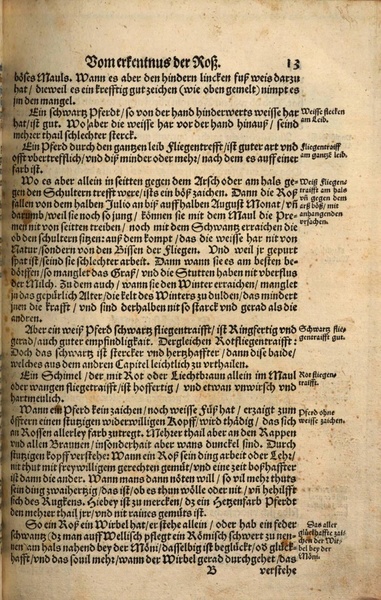 Vom erkentnus der Roß. 13
böses Mauls. Wann es aber den hindern lincken fuß weis darzu
hat / dieweil es ein krefftig gut zeichen (wie oben gemelt) nimpt es
jm den mangel.
Ein schwartz Pferdt / so von der hand hinderwerts weisse har
hat / ist gut. Wo aber die weisse har vor der hand hinauß / seind
mehrer thail schlechter sterck.
Weisse flecken
am Leib.
Ein Pferd durch den gantzen leib Fliegentrefft / ist guter art vnd
offt vbertrefflich / vnd diß minder oder mehr / nach dem es auff einer
farb ist.
Fliegentraifft
am gantzē leib.
Wo es aber allein in seitten gegen dem Arsch oder am hals ge-
gen den Schultern trefft were / ists ein böß zaichen. Dann die Roß
fallen von dem halben Julio an biß auff halben August Monat / vñ
darumb / weil sie noch so jung / können sie mit dem Maul die Pre-
men nit von seitten treiben / noch mit dem Schwantz erraichen die
ob den schultern sitzen: auß dem kompt / das die weisse har nit von
Natur / sondern von den Bissen der Fliegen. Vnd weil jr gepurt
spat ist / seind sie schlechter arbeit. Dann wann sie es am besten be-
dörffen / so manglet das Graß / vnd die Stutten haben nit vberfluß
der Milch. Zu dem auch / wann sie den Winter erraichen / manglet
zu das gepürlich Alter / die kelt des Winters zu dulden / das mindert
jnen die krafft / vnd sind derhalben nit so starck vnd gerad als die
andren.
Weiß fliegen-
traifft am hals
vñ gegen dem
arß böß / mit
anhangenden
vrsachen.
Aber ein weiß Pferd schwartz fliegentraifft / ist Ringfertig vnd
gerad / auch guter empfindligkeit. Dergleichen Rotfliegentraifft:
Doch das schwartz ist stercker vnd hertzhaffter / dann dise baide /
welches aus dem andren Capitel leichtlich zu vrthailen.
Schwartz flie-
gentraifft gut.
Ein Schimel / der mit Rot oder Liechtbraun allein im Maul
oder wangen fliegentraifft / ist hoffertig / vnd etwan vnwirsch vnd
hartneulich.
Rot fliegen-
traifft.
Wann ein Pferd kein zaichen / noch weisse Füß hat / erzaigt zum
öfftern einen stutzigen widerwilligen Kopff / wird thädig / das sich
an Rossen allerley farb zutregt. Mehrer thail aber an den Rappen
vnd allen Braunen / insonderhait aber wans dunckel sind. Durch
stutzigen kopff verstehe: Wann ein Roß sein ding arbeit oder Lehr /
nit thut mit freywilligem gerechten gemüt / vnd eine zeit boßhaffter
ist dann die ander. Wann mans dann nöten will / so vil mehr thuts
sein ding zwaihertzig / das ist / ob es thun wölle oder nit / vñ behilfft
sich des Rugkens. Hiebey ist zu mercken / dz ein Hetzenfarb Pferdt
den mehrer thail jrr / vnd nit raines gemüts ist.
Pferd ohne
weisse zaichen.
So ein Roß ein Wirbel hat / er stehe allein / oder hab ein feder
schwantz / dz man auff Wellisch pflegt ein Römisch schwert zu nen-
nen / am hals nahend bey der Möni / dasselbig ist beglückt / ob glück-
hafft / vnd das souil mehr / wann der Wirbel gerad durchgehet / das
Das aller
glückhaffte zai-
chen der Wir-
bel bey der
Möni.
B verstehe